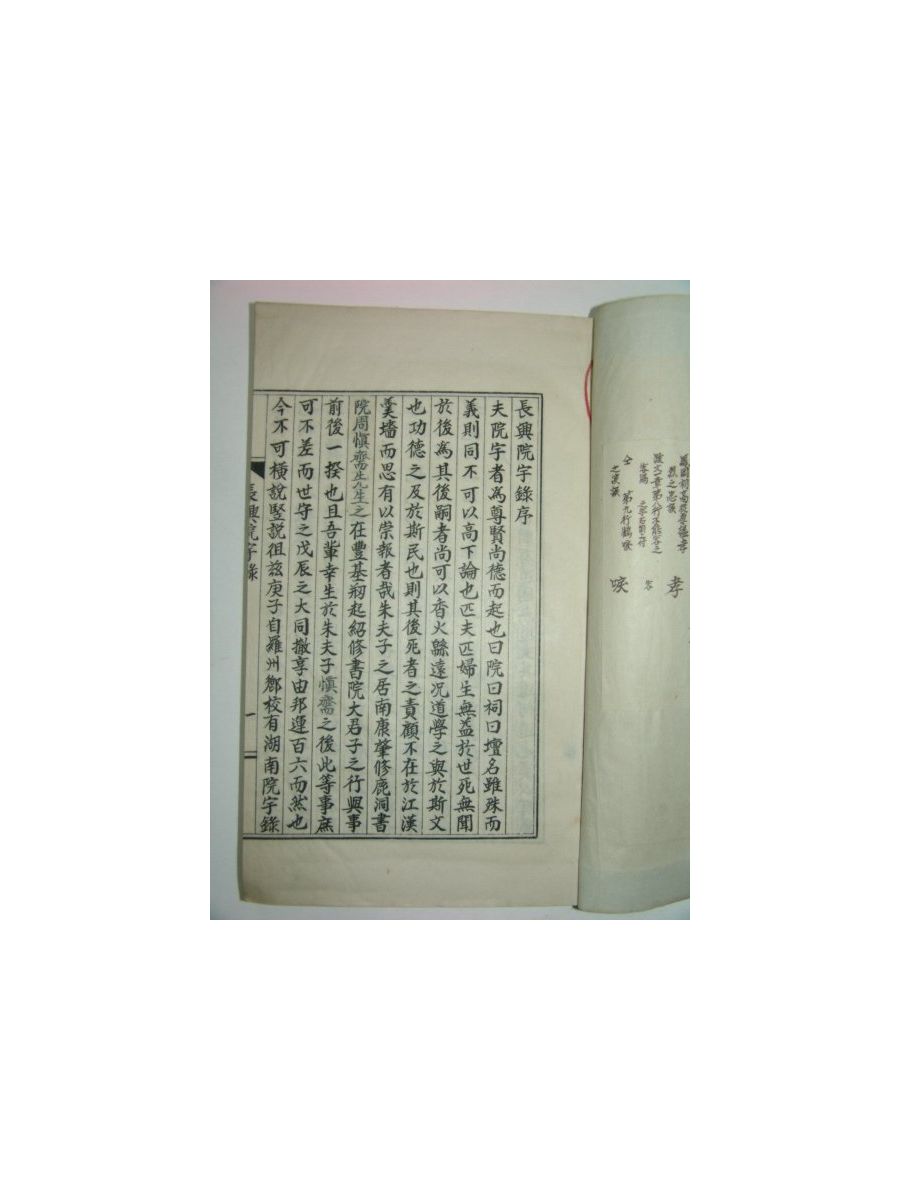 長興院宇錄序
夫院宇者為尊賢尚德而起也曰院曰祠曰壇名雖殊而
義則同不可以高下論也匹夫匹婦生無益於世死無聞
於後為其後嗣者尚可以香火緜遠况道學之與於斯文
也功德之及於斯民也則其後死者之責顧不在於江漢
羹墻而思有以崇報者哉朱夫子之居南康肇修鹿洞書
院周愼齋先生之在豐基刱起紹修書院大君子之行與事
前後一揆也且吾輩幸生於朱夫子愼齋之後此等事庶
可不差而世守之戊辰之大同撤享由邦運百六而然也
今不可橫說竪說徂玆庚子自羅州鄕校有湖南院宇錄
長興院宇錄
一
孝
答
唳
全 第九行鶴唳
之漢議